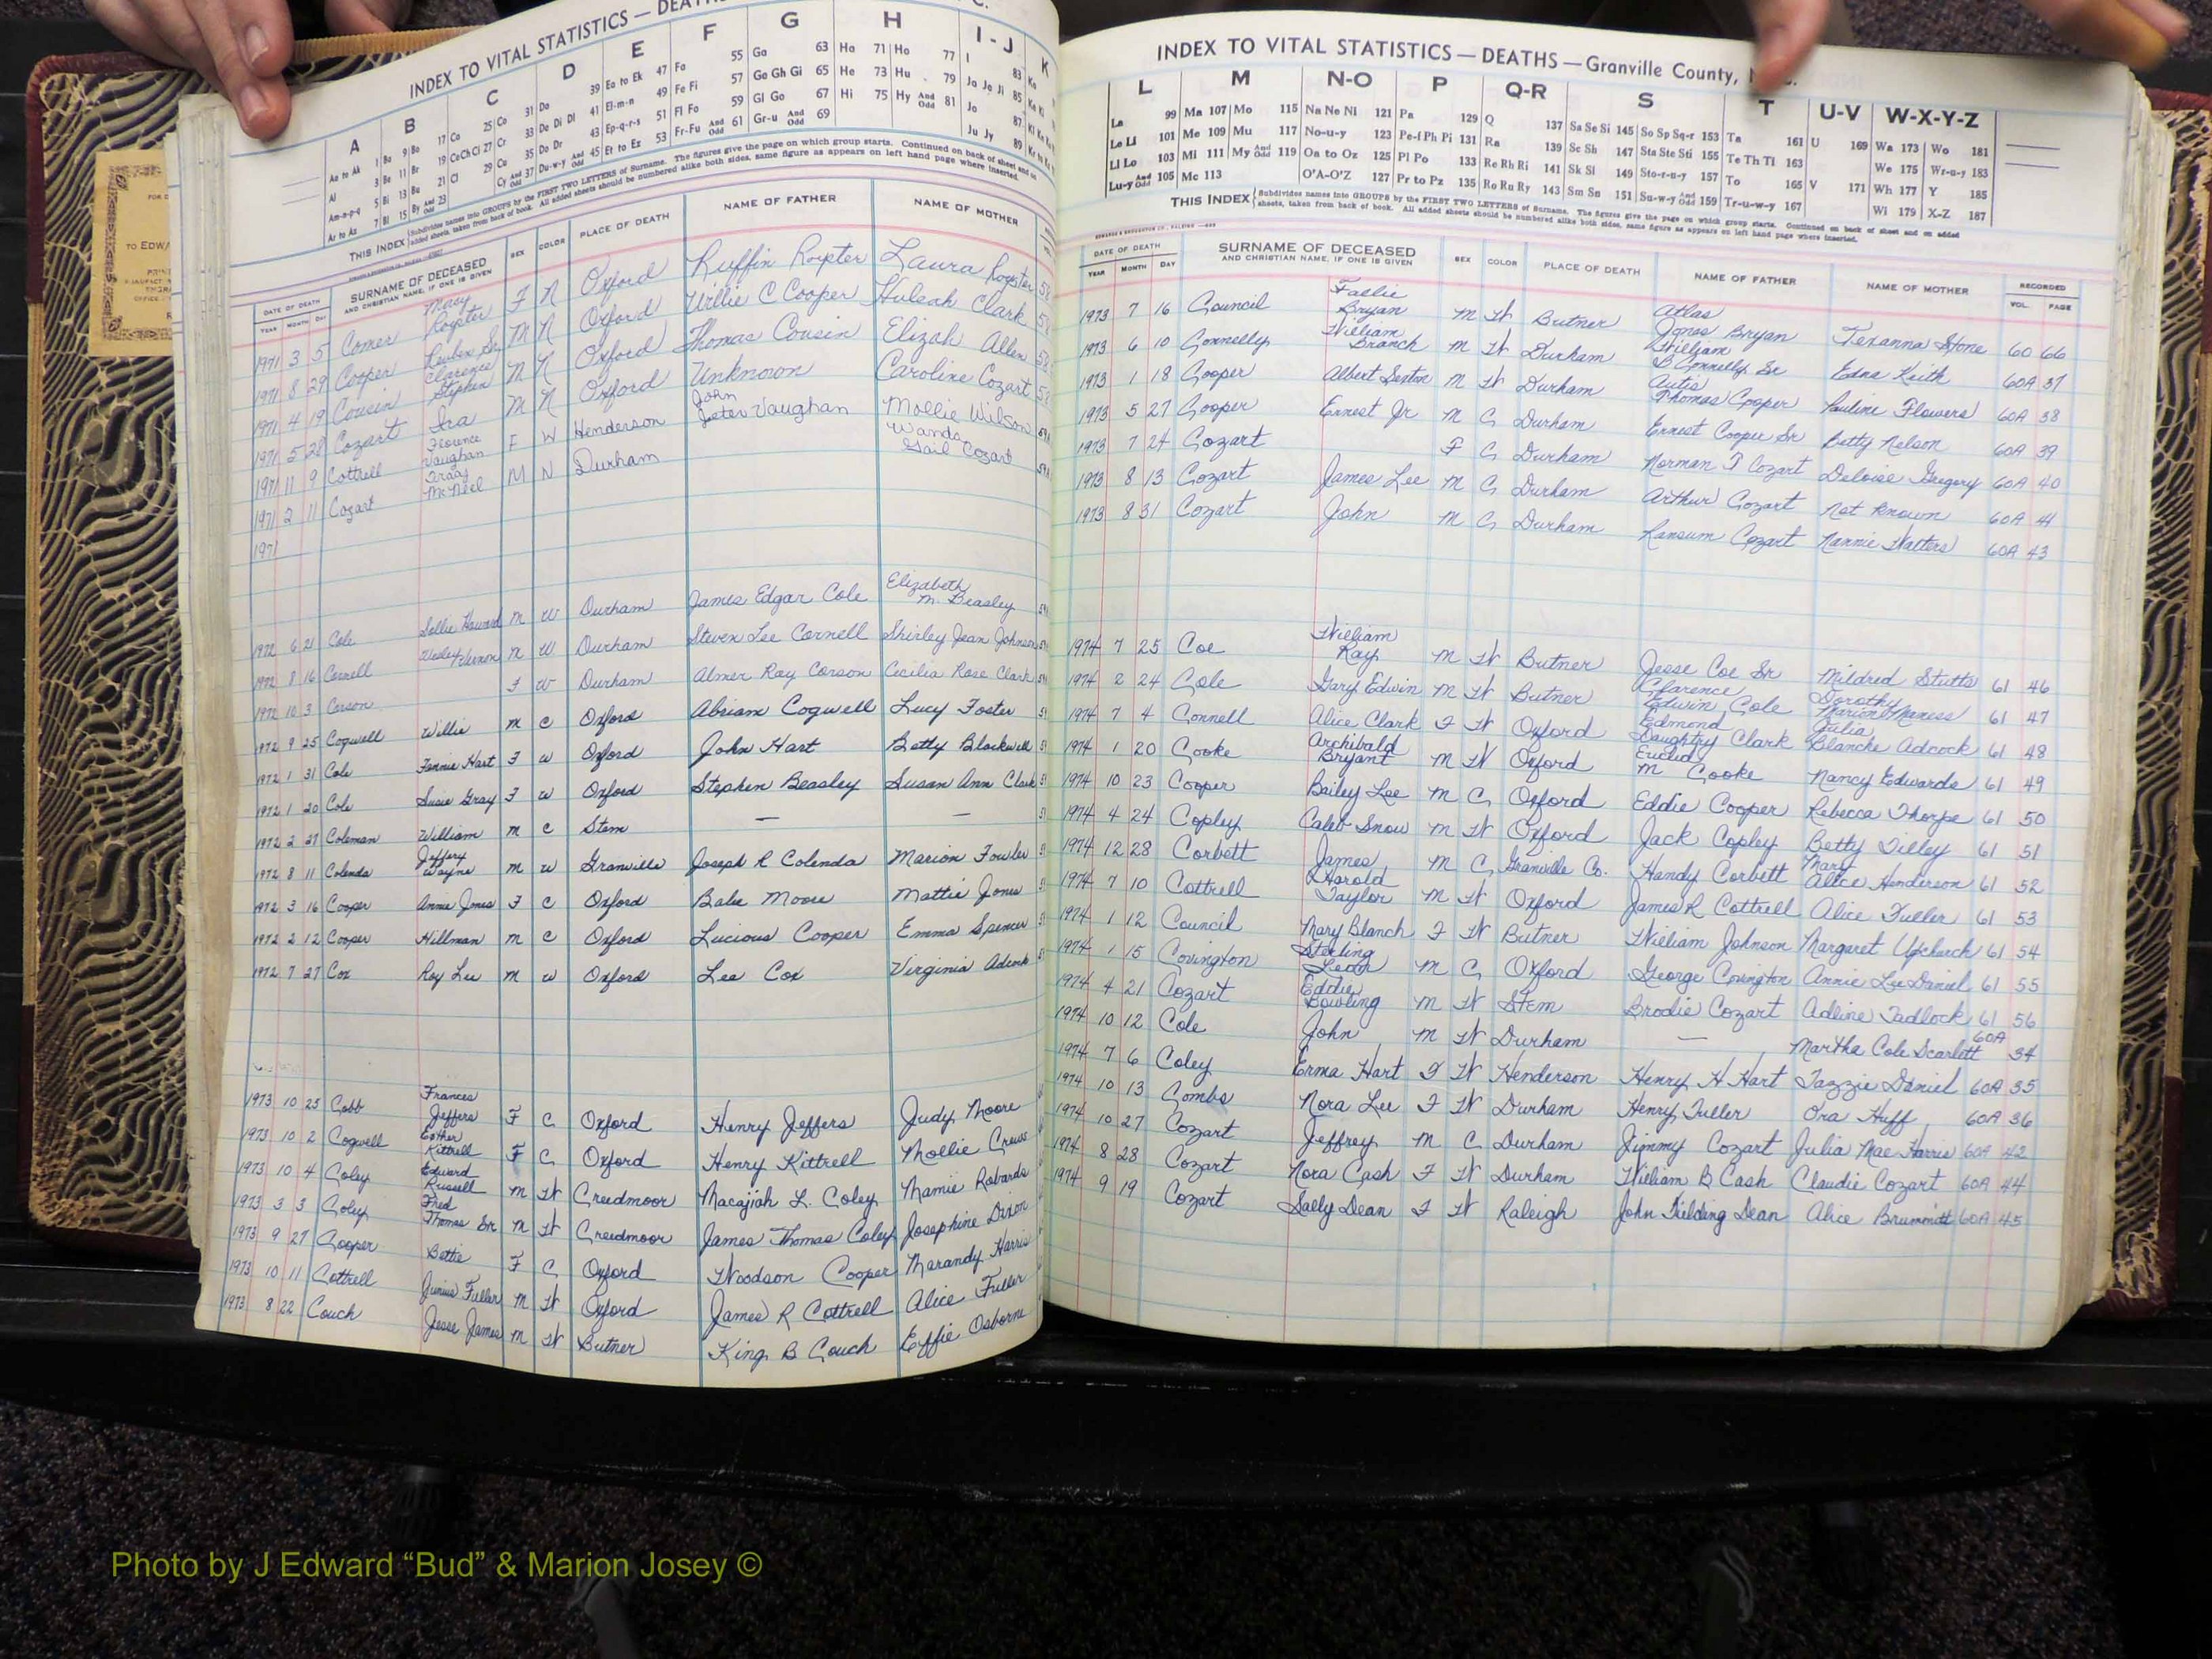 INDEX TO VITAL STATISTICS — DEATHS
A B C D E F G H I - J K
THIS INDEX
DATE OF DEATH SURNAME OF DECEASED SEX COLOR PLACE OF DEATH NAME OF FATHER NAME OF MOTHER
YEAR MONTH DAY AND CHRISTIAN NAME, IF ONE IS GIVEN
1971 3 5 Comer Mercy Royster F N Oxford Ruffin Royster Laura Royster 58
1971 8 29 Cooper Reuben Sr M N Oxford Willie C Cooper Huldah Clark 58
1971 4 19 Cousin Clarence Stephen M N Oxford Thomas Cousin Elizah Allen 58
1971 5 28 Cozart Ira M N Oxford Unknown Caroline Cozart 58
1971 11 9 Cottrell Florence Vaughan F W Henderson John Jeter Vaughan Mollie Wilson
1971 2 11 Cozart McNeel M N Durham Wanda Gail Cozart
1971
1972 6 21 Cole Sollie Howard M W Durham James Edgar Cole Elizabeth M. Beasley
1972 8 16 Cornell Wesley Vernon M W Durham Steven Lee Cornell Shirley Jean Johnson
1972 10 3 Corson F W Durham Almer Ray Corson Cecilia Rose Clark
1972 9 25 Cogwell Willie M C Oxford Abriam Cogwell Lucy Foster
1972 1 31 Cole Fannie Hart F W Oxford John Hart Betty Blackwell
1972 1 20 Cole Susie Gray F W Oxford Stephen Beasley Susan Ann Clark
1972 2 27 Coleman William M C Stem — —
1972 8 11 Colenda Jeffery Wayne M W Granville Joseph R Colenda Marion Fowler
1972 3 16 Cooper Annie Jones F C Oxford Babe Moore Mattie Jones
1972 2 12 Cooper Hillman M C Oxford Lucious Cooper Emma Spencer
1972 7 27 Cox Roy Lee M W Oxford Lee Cox Virginia Adcock
1973 10 25 Cobb Frances Jeffers F C Oxford Henry Jeffers Judy Moore
1973 10 2 Cogwell Esther Kittrell F C Oxford Henry Kittrell Mollie Crews
1973 10 4 Coley Edward Russell M W Creedmoor Macajiah L. Coley Mamie Robards
1973 3 3 Coley Fred Thomas Sr M W Creedmoor James Thomas Coley Josephine Dixon
1973 9 27 Cooper Bettie F C Oxford Woodson Cooper Marandy Harris
1973 10 11 Cottrell Junius Fuller M W Oxford James R Cottrell Alice Fuller
1973 8 22 Couch Jesse James M W Butner King B Couch Effie Osborne
INDEX TO VITAL STATISTICS — DEATHS — Granville County,
L M N-O P Q-R S T U-V W-X-Y-Z
La 99 Ma 107 Mo 115 Na Ne Ni 121 Pa 129 Q 137 Sa Se Si 145 So Sp Sq-r 153 Ta 161 U 169 Wa 173 Wo 181
Le Li 101 Me 109 Mu 117 No-u-y 123 Pe-f Ph Pi 131 Ra 139 Sc Sh 147 Sta Ste Sti 155 Te Th Ti 163 We 175 Wr-u-y 183
Ll Lo 103 Mi 111 My And Odd 119 Oa to Oz 125 Pl Po 133 Re Rh Ri 141 Sk Sl 149 Sto-r-u-y 157 To 165 V 171 Wh 177 Y 185
Lu-y And Odd 105 Mc 113 O'A-O'Z 127 Pr to Pz 135 Ro Ru Ry 143 Sm Sn 151 Su-w-y And Odd 159 Tr-u-w-y 167 Wi 179 X-Z 187
THIS INDEX Subdivides names into GROUPS by the FIRST TWO LETTERS of Surname. The figures give the page on which group starts. Continued on back of sheet and on added
sheets, taken from back of book. All added sheets should be numbered alike both sides, same figure as appears on left hand page where inserted.
DATE OF DEATH SURNAME OF DECEASED SEX COLOR PLACE OF DEATH NAME OF FATHER NAME OF MOTHER RECORDED
YEAR MONTH DAY AND CHRISTIAN NAME, IF ONE IS GIVEN VOL. PAGE
1973 7 16 Council Fallie Bryan M W Butner Atlas Jones Bryan Texanna Stone 60 66
1973 6 10 Connelly William Branch M W Durham William B Connelly Sr Edna Keith 60A 37
1973 1 18 Cooper Albert Sexton M W Durham Autis Thomas Cooper Pauline Flowers 60A 38
1973 5 27 Cooper Ernest Jr M C Durham Ernest Cooper Sr Betty Nelson 60A 39
1973 7 24 Cozart F C Durham Norman T Cozart Deloise Gregory 60A 40
1973 8 13 Cozart James Lee M C Durham Arthur Cozart Not Known 60A 41
1973 8 31 Cozart John M C Durham Ransum Cozart Nannie Walters 60A 43
1974 7 25 Coe William Ray M W Butner Jesse Coe Sr Mildred Stutts 61 46
1974 2 24 Cole Gary Edwin M W Butner Clarence Edwin Cole Dorothy Marion Maness 61 47
1974 7 4 Connell Alice Clark F W Oxford Edmond Daughtry Clark Julia Blanche Adcock 61 48
1974 1 20 Cooke Archibald Bryant M W Oxford Euclid M Cooke Nancy Edwards 61 49
1974 10 23 Cooper Bailey Lee M C Oxford Eddie Cooper Rebecca Thorpe 61 50
1974 4 24 Copley Caleb Snow M W Oxford Jack Copley Betty Tilley 61 51
1974 12 28 Corbett James M C Granville Co. Handy Corbett Mary Alice Henderson 61 52
1974 7 10 Cottrell Harold Taylor M W Oxford James R Cottrell Alice Fuller 61 53
1974 1 12 Council Mary Blanch F W Butner William Johnson Margaret Upchurch 61 54
1974 1 15 Covington Sterling Leon M C Oxford George Covington Annie Lee Daniel 61 55
1974 4 21 Cozart Eddie Bowling M W Stem Brodie Cozart Adline Tadlock 61 56
1974 10 12 Cole John M W Durham — Martha Cole Scarlett 60A 34
1974 7 6 Coley Erma Hart F W Henderson Henry H Hart Tazzie Daniel 60A 35
1974 10 13 Combs Nora Lee F W Durham Henry Fuller Ora Huff 60A 36
1974 10 27 Cozart Jeffrey M C Durham Jimmy Cozart Julia Mae Harris 60A 42
1974 8 28 Cozart Nora Cash F W Durham William B Cash Claudie Cozart 60A 44
1974 9 19 Cozart Sally Dean F W Raleigh John Fielding Dean Alice Brummitt 60A 45
Photo by J Edward “Bud” & Marion Josey ©